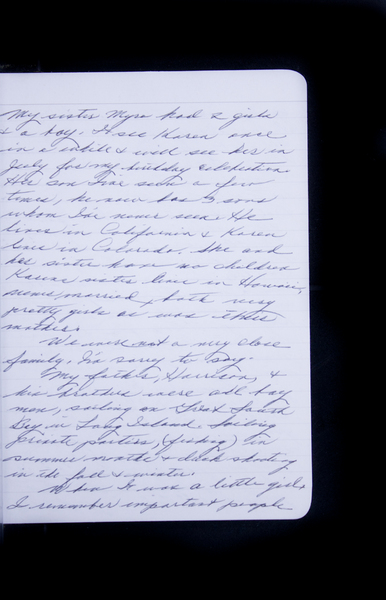 My sister Myra had 2 girls
& a boy. I see Karen once
in a while & will see her in
July for my birthday celebration.
Her son I've seen a few
times, he now has 3 sons
whom I've never seen. He
lives in California & Karen
lives in Colorado. She and
her sister have no children
Karens sister lives in Hawaii,
never married, both very
pretty girls as was their
mother.
We were not a very close
family, I'm sorry to say.
My father, Harrison, &
his brothers were all bay
men, sailing on Great South
Bay in Long Island. Sailing
private parties, (fishing) in
summer months & duck shooting
in the fall & winter.
When I was a little girl,
I remember important people